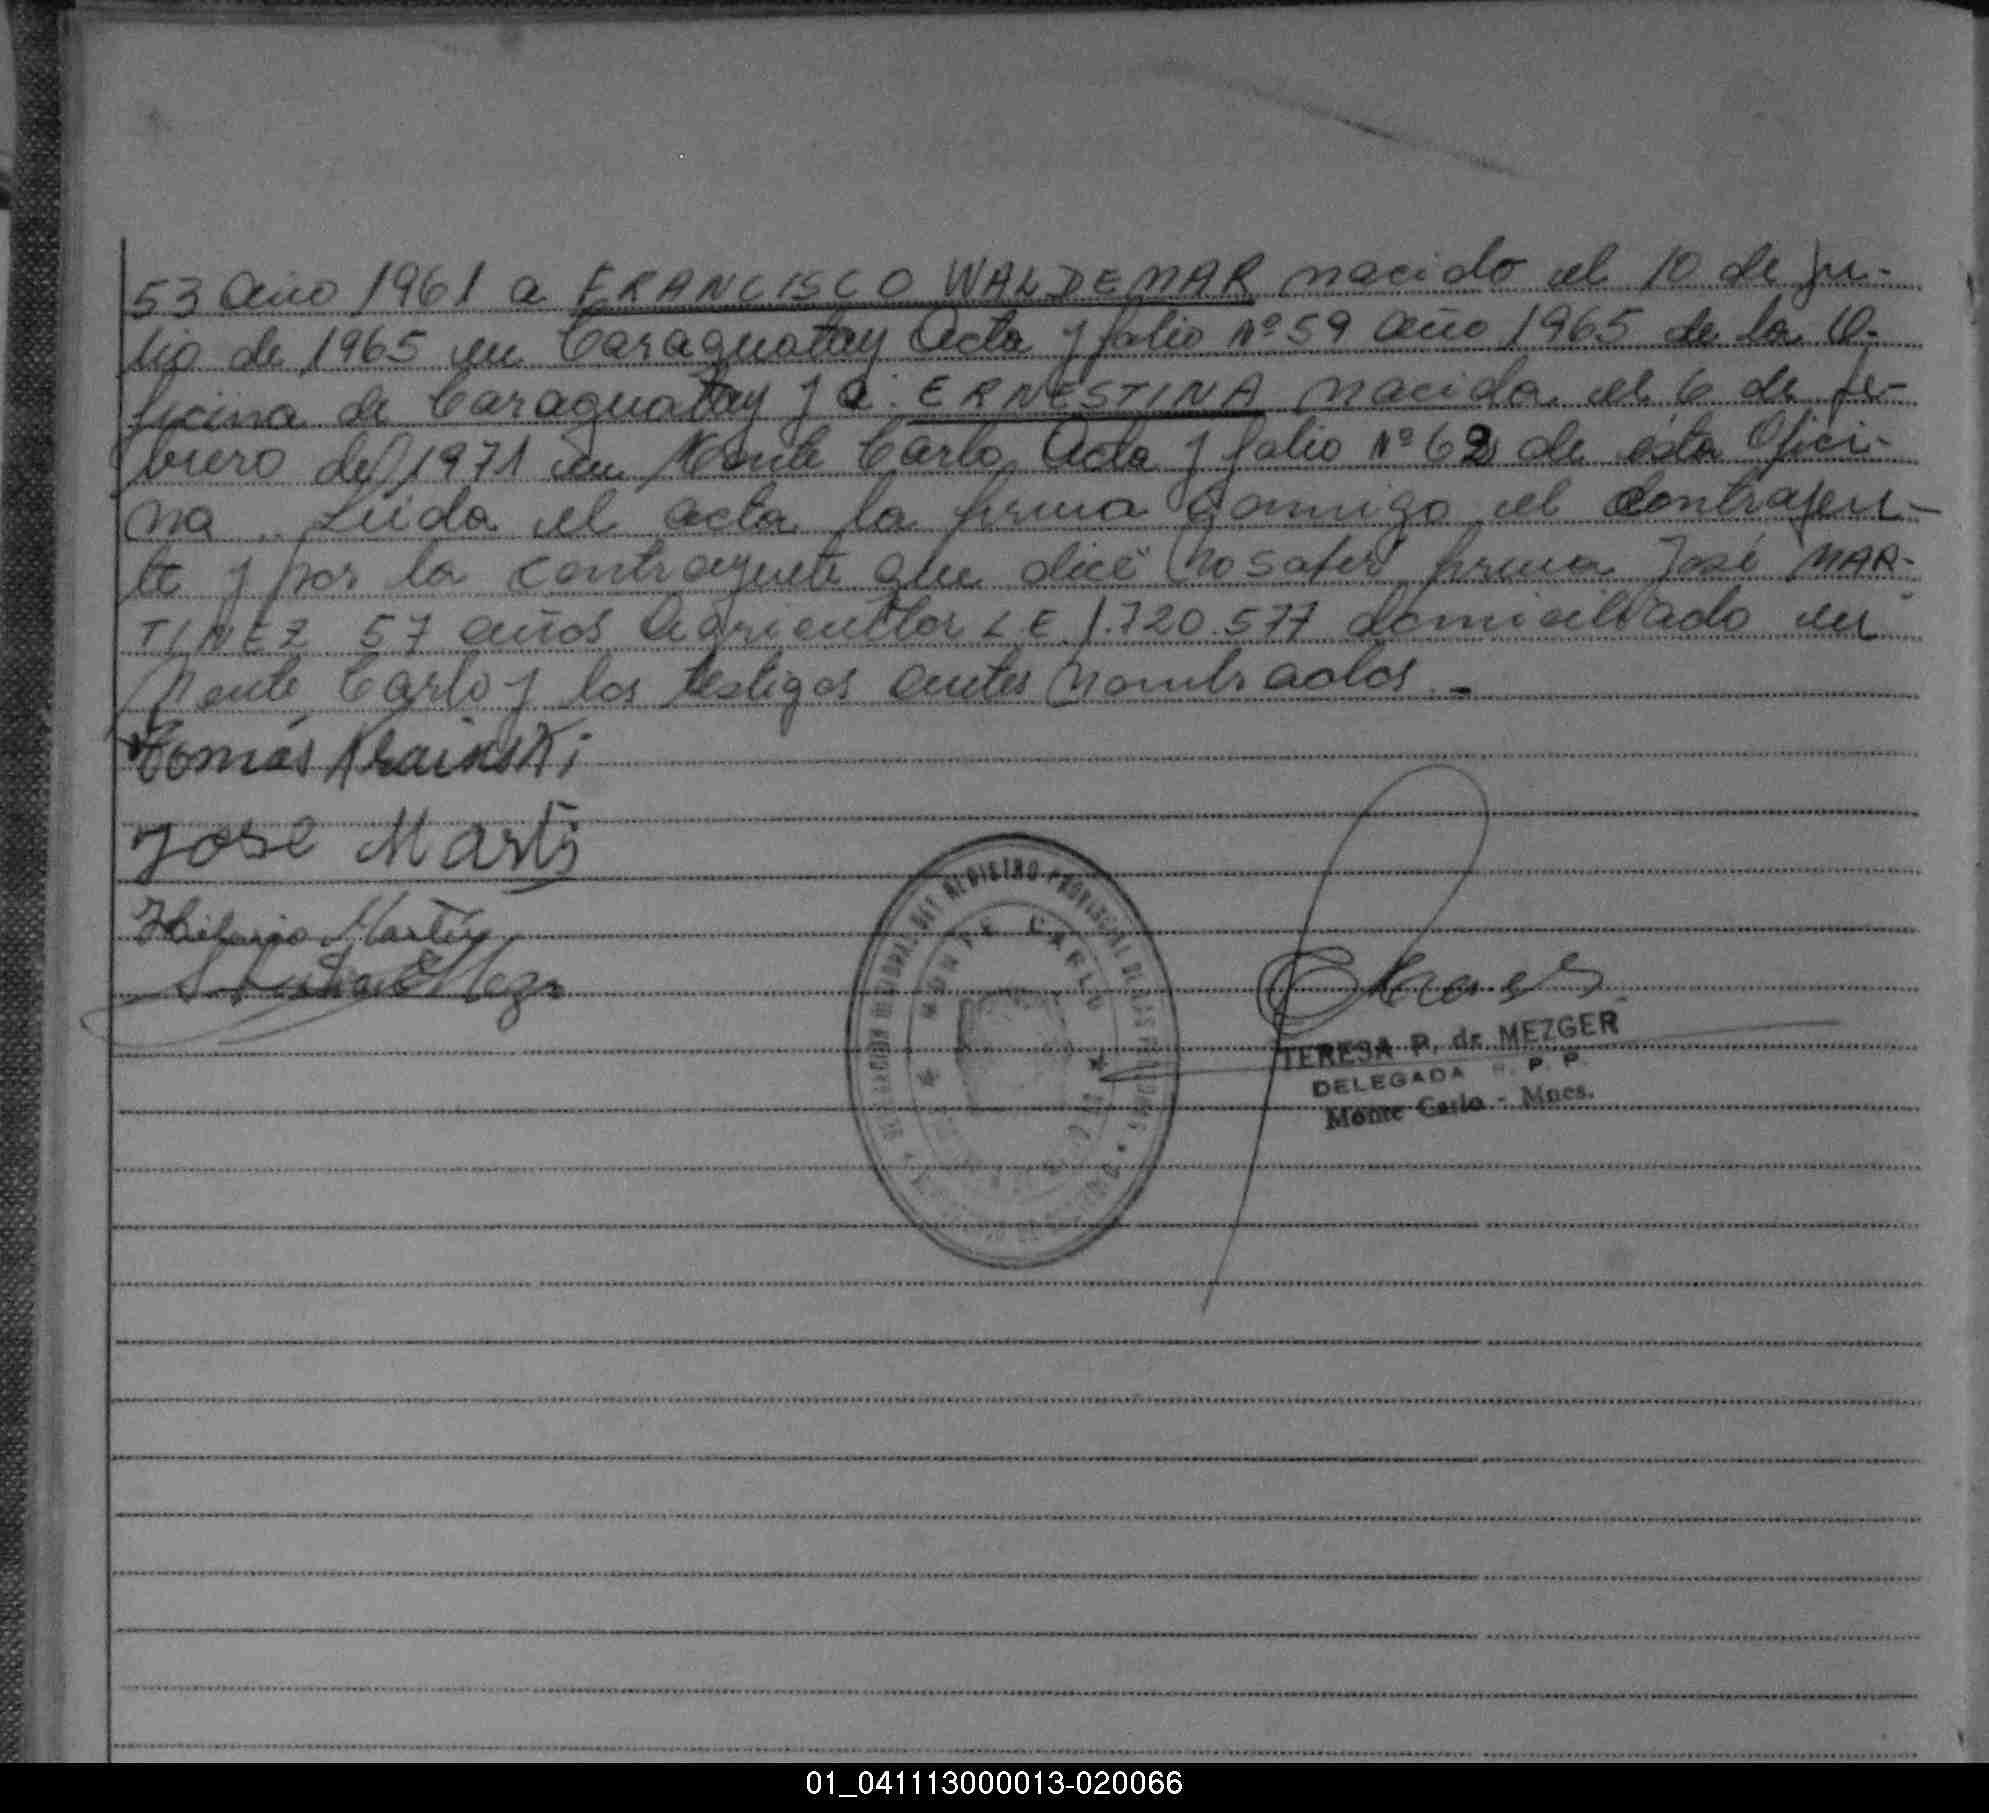 53 año 1961 a FRANCISCO WALDEMAR nacido el 10 de ju-
lio de 1965 en Caraguatay Acta y folio Nº 59 año 1965 de la O-
ficina de Caraguatay y a: ERNESTINA nacida el 6 de fe-
brero de 1971 en Monte Carlo Acta y folio Nº 62 de ésta Ofici-
na.. Leida el acta la firma conmigo el contrayen-
te y por la contrayente que dice no saber firma José MAR-
TINEZ 57 años Agricultor L E 1.720.577 domiciliado en
Monte Carlo y los testigos antes nombrados.-
Tomás Krainski
José Martz
Hilario Martz
REGISTRO PROVINCIAL DE LAS PERSONAS
MONTE CARLO
TERESA P. de MEZGER
DELEGADA R. P. P.
Monte Carlo - Mnes.
01_041113000013-020066